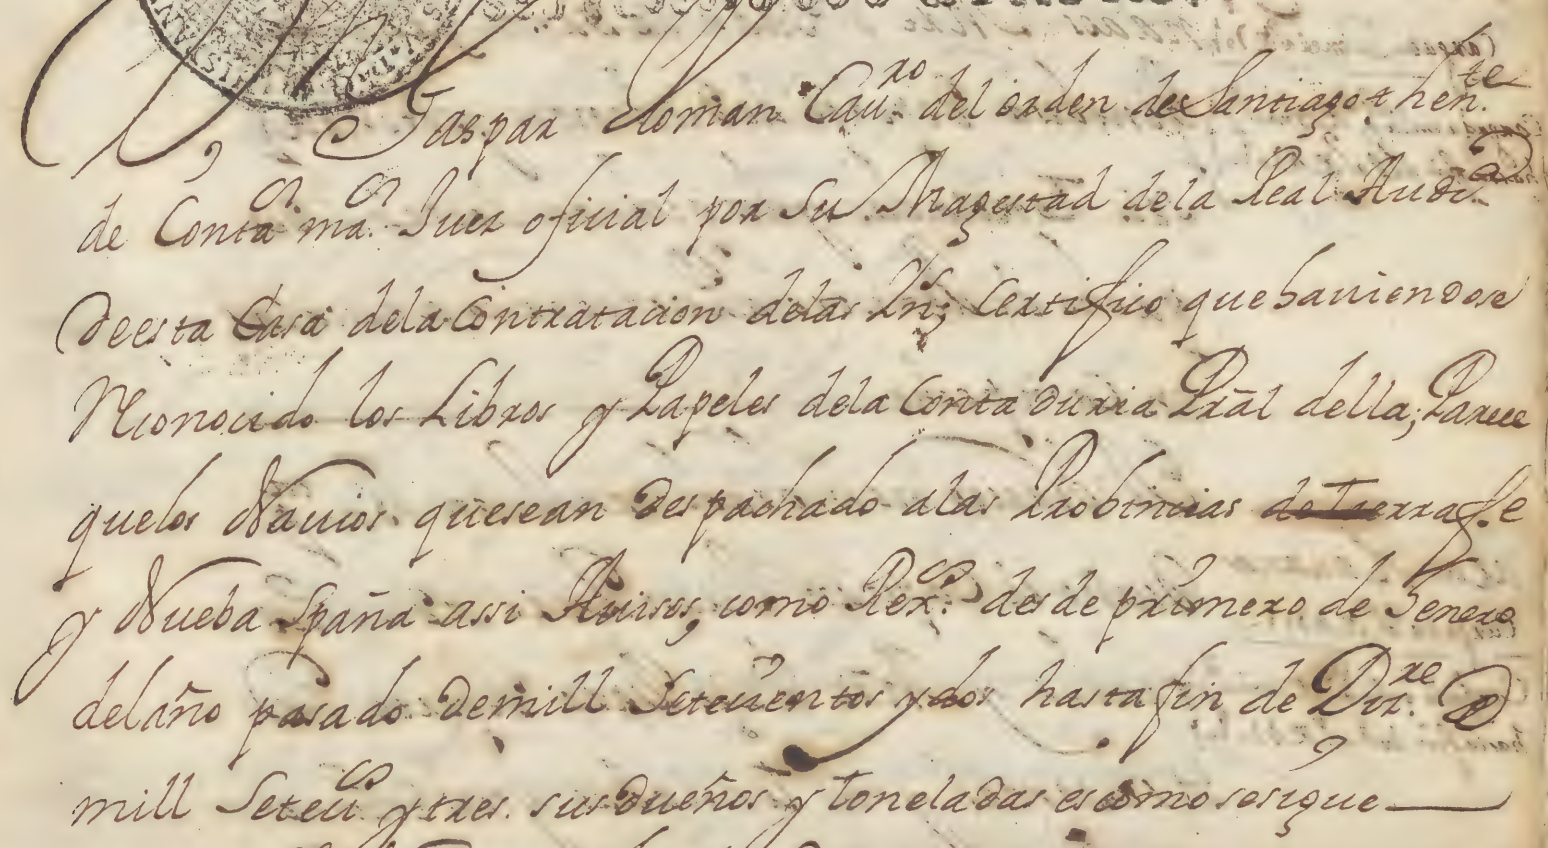 Gaspar Roman Cau.ro del orden de Santiago then.te
de Conta.s ma.s Juez oficial por Su Magestad de la Real Audi.a
de esta Casa dela Contratacion delas Yn.s Certifico que haviendose
Reconocido los Libros y Papeles dela Contaduria Prãl della; Parece
quelos Nauios quesean despachado alas Probincias de Tierraf.e
y Nueba España assi Auisos, como Rex.s desde primero de henero
del año pasado demill Setecientos y dos hasta fin de Diz.re de
mill Setec.s y tres. sus dueños y toneladas es como se sigue